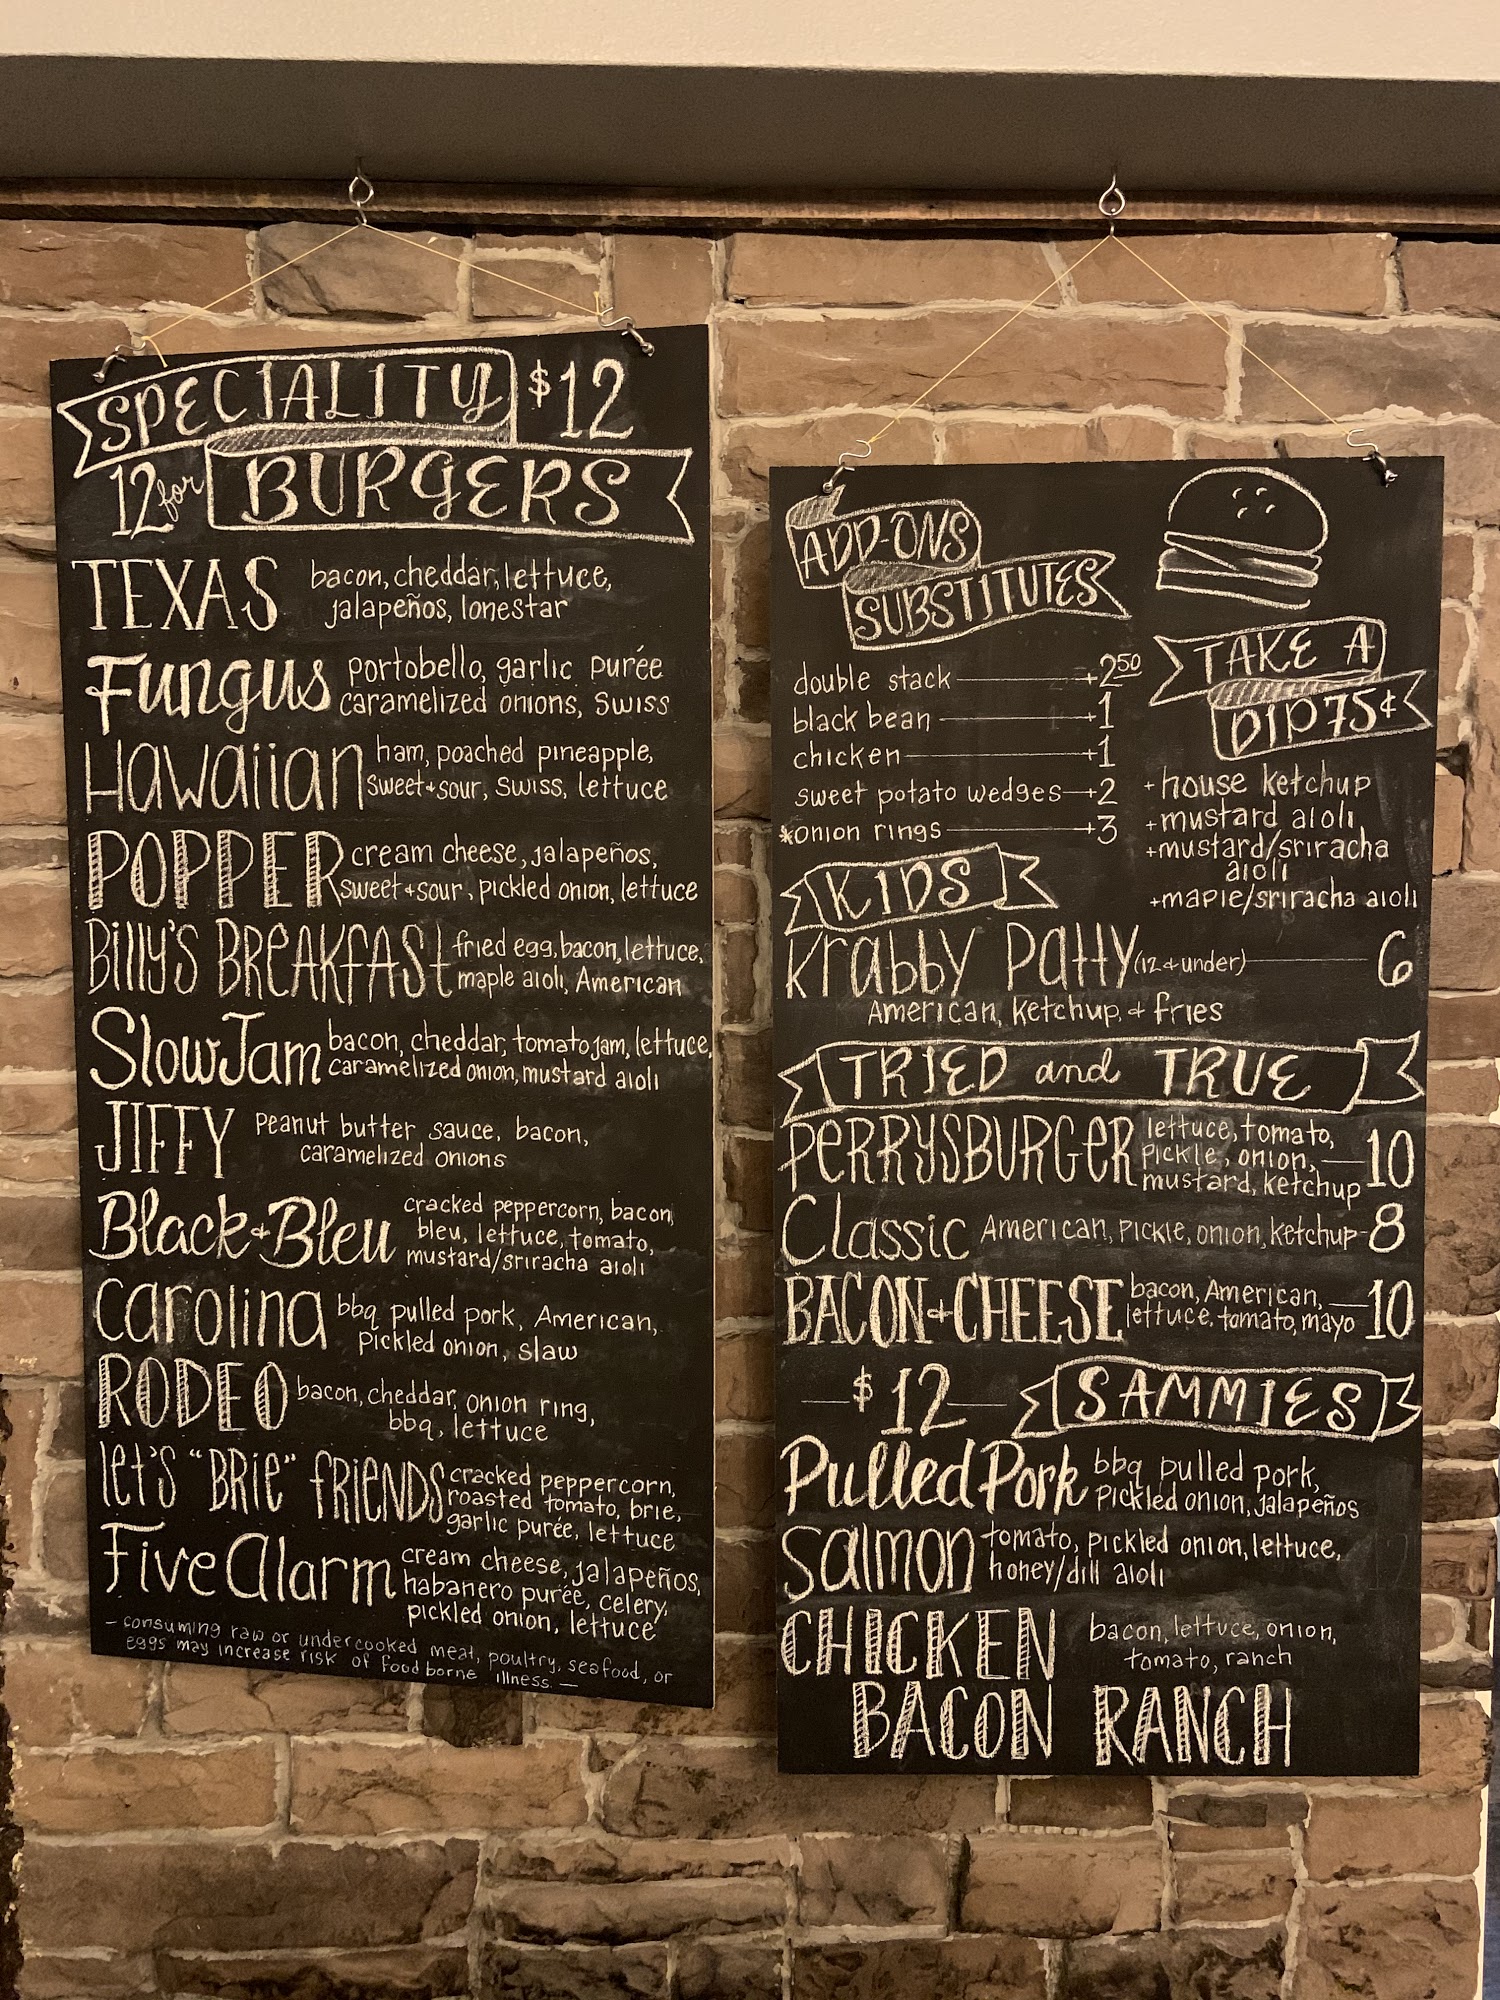 SPECIALITY $12
12 for BURGERS
TEXAS bacon, cheddar, lettuce,
jalapeños, lonestar
Fungus portobello, garlic purée
caramelized onions, Swiss
Hawaiian ham, poached pineapple,
sweet+sour, Swiss, lettuce
POPPER cream cheese, jalapeños,
sweet+sour, pickled onion, lettuce
Billy's BREAKFAST fried egg, bacon, lettuce,
maple aioli, American
Slow Jam bacon, cheddar, tomato jam, lettuce,
caramelized onion, mustard aioli
JIFFY Peanut butter sauce, bacon,
caramelized onions
Black+Bleu cracked peppercorn, bacon,
bleu, lettuce, tomato,
mustard/sriracha aioli
Carolina bbq pulled pork, American,
pickled onion, slaw
RODEO bacon, cheddar, onion ring,
bbq, lettuce
let's "BRie" FRIENDS cracked peppercorn,
roasted tomato, brie,
garlic purée, lettuce
Five Alarm cream cheese, jalapeños,
habanero purée, celery,
pickled onion, lettuce
- consuming raw or undercooked meat, poultry, seafood, or
eggs may increase risk of food borne illness. -
ADD-ONS
SUBSTITUTES
double stack +2.50
black bean +1
chicken +1
sweet potato wedges +2
*onion rings +3
TAKE A
DIP 75¢
+house ketchup
+mustard aioli
+mustard/sriracha
aioli
+maple/sriracha aioli
KIDS
Krabby Patty (12 + under) 6
American, ketchup, + fries
TRIED and TRUE
PERRYSBURGER lettuce, tomato,
pickle, onion, 10
mustard, ketchup
Classic American, pickle, onion, ketchup 8
BACON+CHEESE bacon, American, 10
lettuce, tomato, mayo
$12 SAMMIES
Pulled Pork bbq pulled pork,
pickled onion, jalapeños
Salmon tomato, pickled onion, lettuce,
honey/dill aioli
CHICKEN bacon, lettuce, onion,
tomato, ranch
BACON RANCH